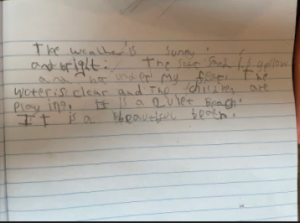 The weather is sunny.
and bright. The soft sand is yellow
and hot under my feet. The
water is clear and The children are
playing. It is a quiet beach.
It is a beautiful beach.